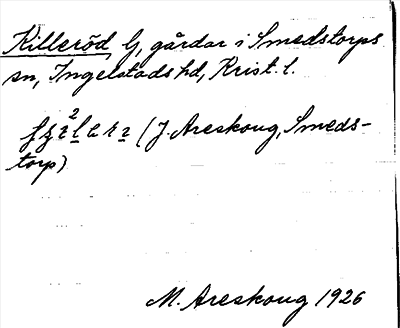 Killeröd, G, gårdar i Smedstorps
sn, Ingelstads hd, Krist. l.
(J. Areskoug, Smeds-
torp)
M. Areskoug 1926